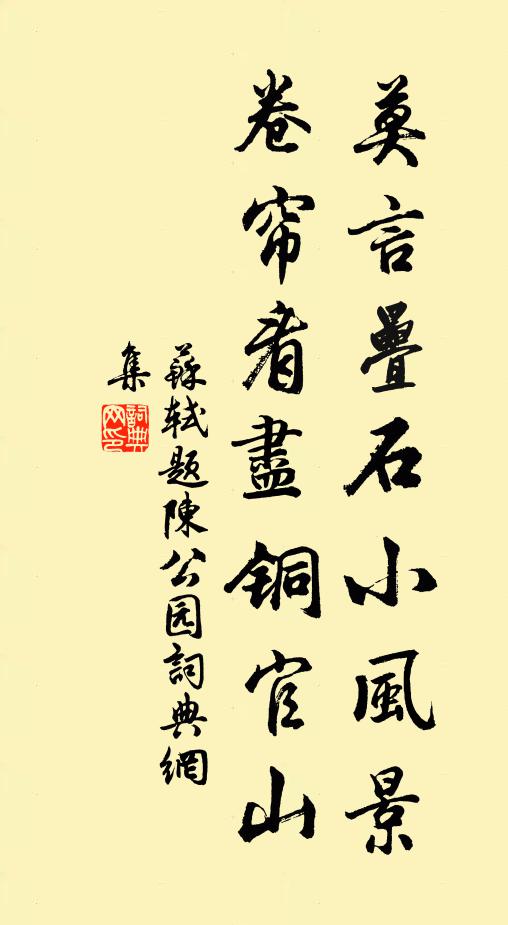 莫言疊石小風景
卷帘看盡銅官山
蘇軾题陳公园詞典網
集
詞典
网印